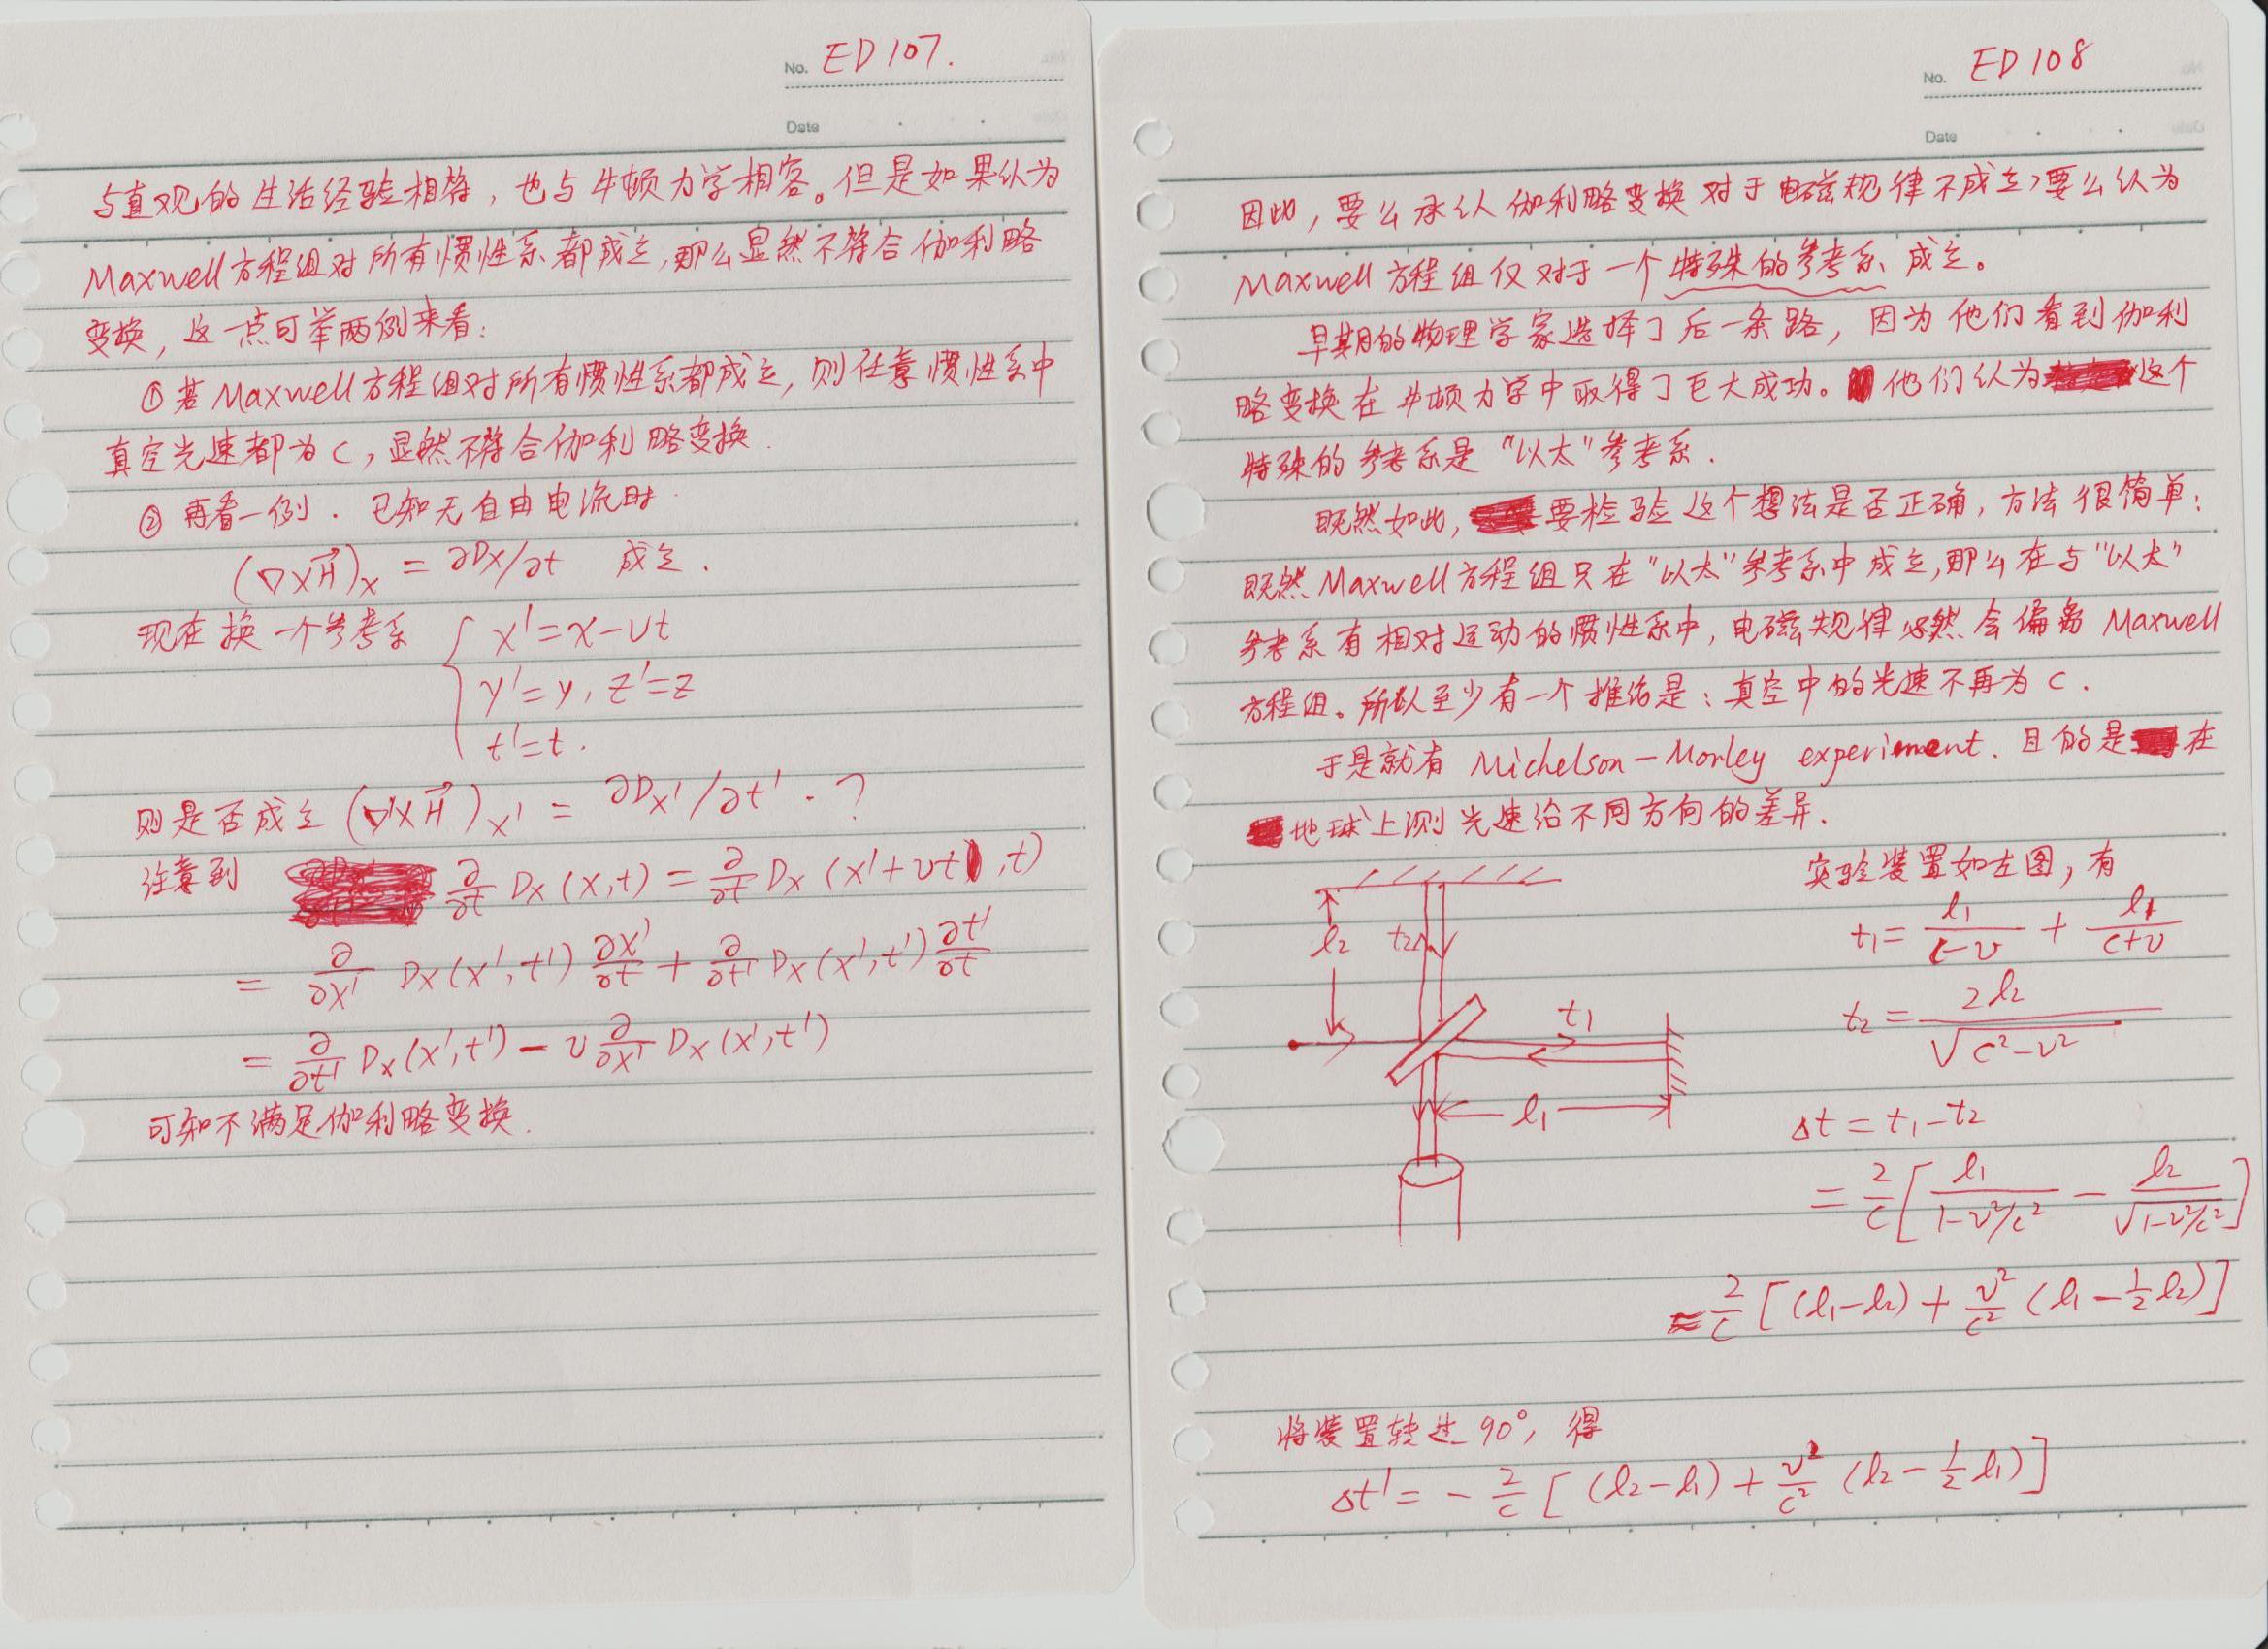 No. ED107.
Date
与直观的生活经验相符，也与牛顿力学相容。但是如果认为
Maxwell方程组对所有惯性系都成立,那么显然不符合伽利略
变换，这一点可举两例来看：
①若Maxwell方程组对所有惯性系都成立，则任意惯性系中
真空光速都为c，显然不符合伽利略变换.
②再看一例. 已知无自由电流时
(∇×H⃗)x = ∂Dx/∂t 成立.
现在换一个参考系 { x'=x-vt
y'=y, z'=z
t'=t.
则是否成立 (∇'×H⃗)x' = ∂Dx'/∂t'.?
注意到 ∂/∂t Dx(x,t) = ∂/∂t Dx(x'+vt,t)
= ∂/∂x' Dx(x',t') ∂x'/∂t + ∂/∂t' Dx(x',t') ∂t'/∂t
= ∂/∂t' Dx(x',t') - v ∂/∂x' Dx(x',t')
可知不满足伽利略变换.
No. ED108
Date
因此，要么承认伽利略变换对于电磁规律不成立,要么认为
Maxwell方程组仅对于一个特殊的参考系成立。
早期的物理学家选择了后一条路，因为他们看到伽利
略变换在牛顿力学中取得了巨大成功。他们认为这个
特殊的参考系是“以太”参考系.
既然如此，要检验这个想法是否正确，方法很简单：
既然Maxwell方程组只在“以太”参考系中成立,那么在与“以太”
参考系有相对运动的惯性系中，电磁规律必然会偏离Maxwell
方程组。所以至少有一个推论是：真空中的光速不再为c.
于是就有 Michelson-Morley experiment. 目的是在
地球上测光速沿不同方向的差异.
实验装置如左图，有
l2 t2
t1
l1
t1 = l1/(c-v) + l1/(c+v)
t2 = 2l2/√(c²-v²)
Δt = t1-t2
= 2/c [ l1/(1-v²/c²) - l2/√(1-v²/c²) ]
≈ 2/c [(l1-l2) + v²/c² (l1-½l2)]
将装置转过90°，得
Δt' = - 2/c [(l2-l1) + v²/c² (l2-½l1)]